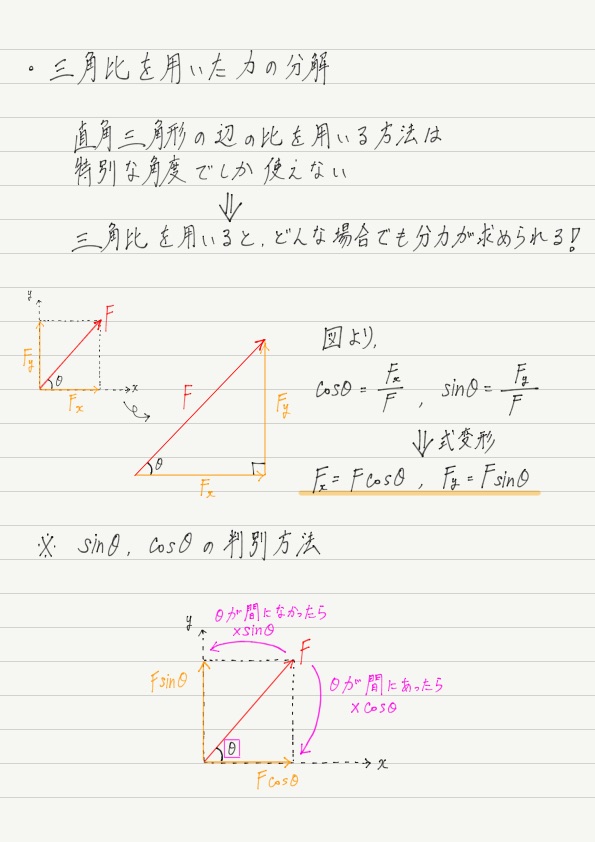 ・三角比を用いた力の分解
直角三角形の辺の比を用いる方法は
特別な角度でしか使えない
⇓
三角比を用いると、どんな場合でも分力が求められる!
y
F
Fy
θ
x
Fx
F
Fy
θ
Fx
図より,
cosθ = Fx/F , sinθ = Fy/F
⇓ 式変形
Fx = Fcosθ , Fy = Fsinθ
※ sinθ, cosθの判別方法
y
θが間になかったら
×sinθ
F
Fsinθ
θが間にあったら
×cosθ
θ
x
Fcosθ